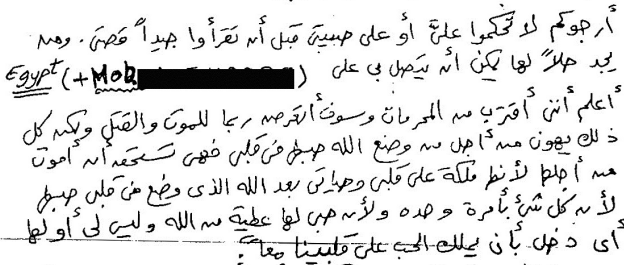 أرجوكم لا تحكموا عليَّ أو على حبيبتي قبل أن تقرأوا جيداً قصتي. ومن
يجد حلاً لها يمكن أن يتصل بي على (+Mob) Egypt
أعلم أنني أقترب من المحرمات وسوف أتعرض ربما للموت والقتل ولكن كل
ذلك يهون من أجل من وضع الله حبها في قلبي فهي تستحق أن أموت
من أجلها لأنها ملكة على قلبي وحياتي بعد الله الذي وضع في قلبي حبها
لأن كل شئ بأمره وحده ولأن حبي لها عطية من الله وليس لي أو لها
أي دخل بأن يملك الحب على قلبينا معاً.